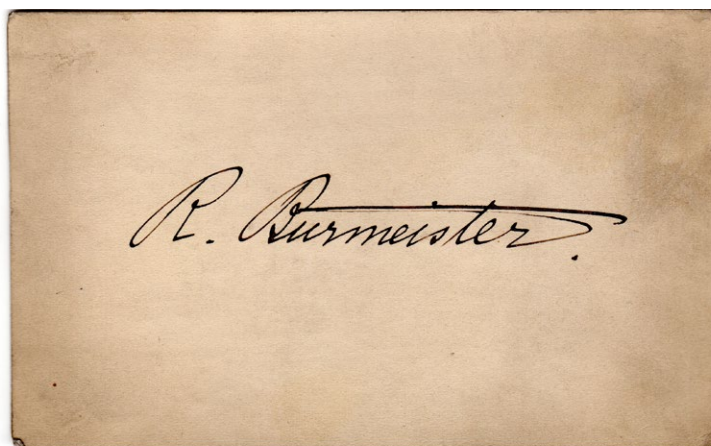 R. Burmeister.